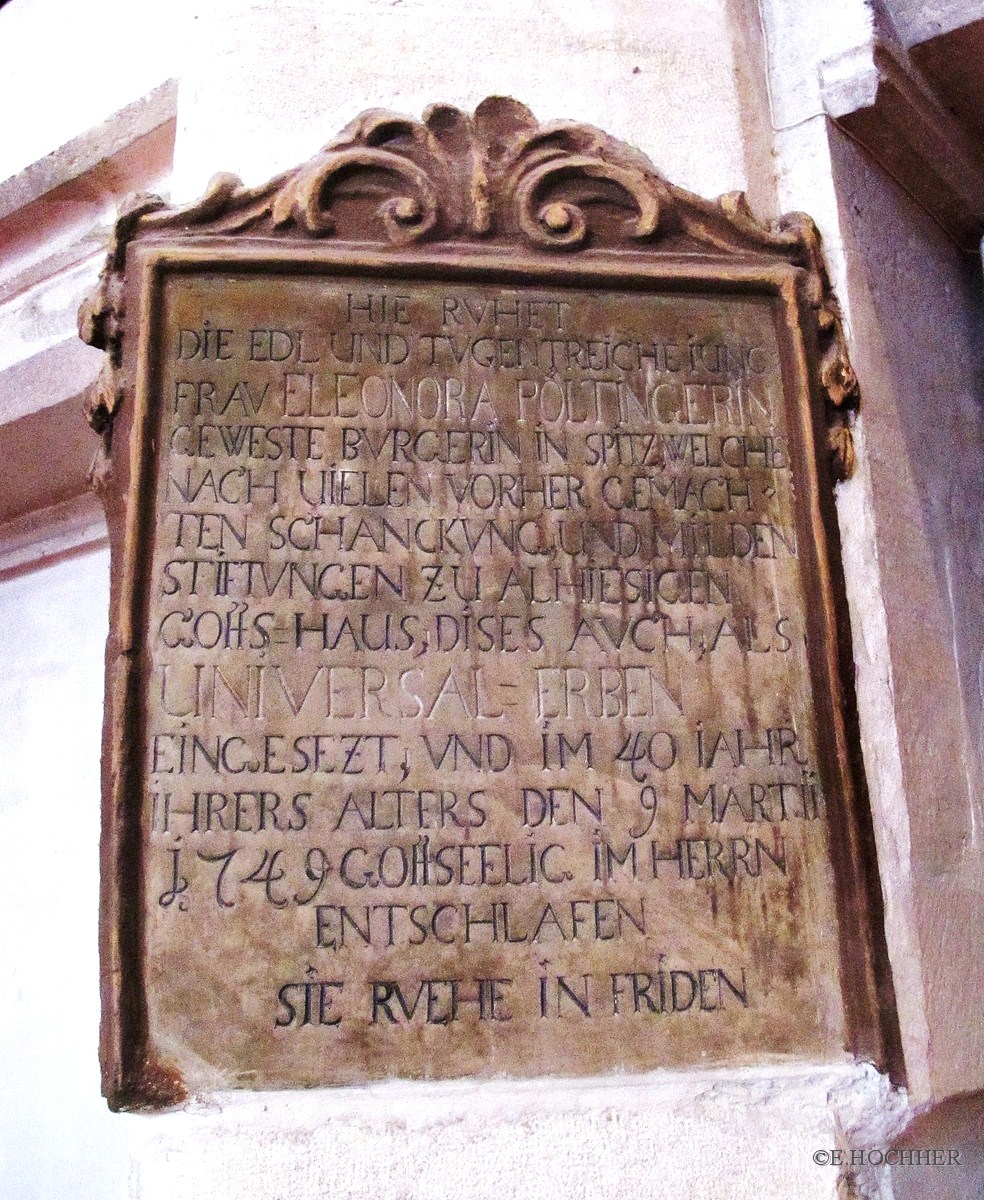 HIE RVHET
DIE EDL UND TVGENTREICHE IUNG
FRAV ELEONORA PÖLTINGERIN
GEWESTE BVRGERIN IN SPITZ, WELCHE
NACH UIELEN VORHER GEMACH-
TEN SCHANCKVNG, UND MILDEN
STIFTVNGEN ZU ALHIESIGEN
GOTTS=HAUS, DISES AVCH, ALS
UNIVERSAL=ERBEN
EINGESEZT, VND IM 40 IAHR
IHRERS ALTERS DEN 9 MARTII
J. 749 GOTTSEELIG IM HERRN
ENTSCHLAFEN
SIE RVEHE IN FRIDEN
©E.HOCHHER